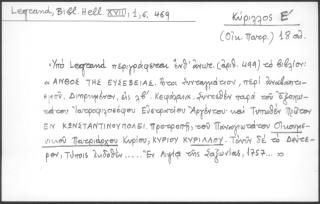 Legrand, Bibl. Hell. XVIII, 1, σ. 469
Κύριλλος Ε´
(Οἰκ. Πατρ.) 18 αἰ.
Ὑπὸ Legrand περιγράφεται ὑπ' ἀριθ. (ἀριθ. 499) τὸ Βιβλίον:
« ΑΝΘΟΣ ΤΗΣ ΕΥΣΕΒΕΙΑΣ. Ἤτοι Συνταγμάτιον, περὶ ἀναβαπτι-
σμοῦ, Διῃρημένον, εἰς λβ´. Κεφάλαια. Συντεθὲν παρὰ τοῦ Ἐξοχω-
τάτου Ἰατροφιλοσόφου Εὐστρατίου Ἀργέντου· καὶ Τυπωθὲν Πρῶτον
ΕΝ ΚΩΝΣΤΑΝΤΙΝΟΥΠΟΛΕΙ. Προτροπῇ, τοῦ Παναγιωτάτου Οἰκουμε-
νικοῦ Πατριάρχου Κυρίου, ΚΥΡΙΟΥ ΚΥΡΙΛΛΟΥ. Τανῦν δὲ τὸ Δεύτε-
ρον, Τύποις ἐκδοθὲν ..... Ἐν Λειψίᾳ τῆς Σαξωνίας, 1757... »